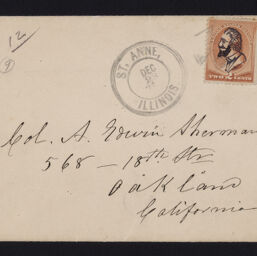 12
ST. ANNE,
DEC
ILLINOIS
TWO 2 CENTS
Col. A. Edwin Sherman
568 - 18th Str
Oakland
California